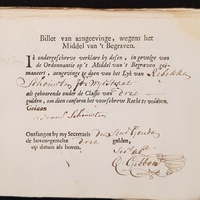 Billet van aangeevinge, wegens het
Middel van 't Begraven.
Ik ondergeschreve verklare by desen, in gevolge van
de Ordonnantie op 't Middel van 't Begraven ge-
maneert, aangevinge te doen van het Lyk van Rebekka
Schouten
als gehoorende onder de Classis van drie
gulden, om deen conform het voorschreve Recht te voldoen,
Gedaan
Schouten
Ontfangen by my Secretaris der Stad Gouda
de boven-gemelte drie gulden,
op datum als boven.